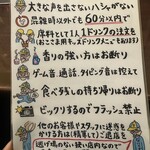 大きな声を出さない ハシャがない
混雑時以外でも60分以内で
席料として1人1ドリンクの注文を
(おこさま用キッズドリンクメニューもあります)
香りの強い方はお断り
ゲーム音、通話、タイピング音は控えて
食べ残しの持ち帰りはお断り
ビックリするのでフラッシュ禁止
他のお客様やスタッフに迷惑を
かける方は(精算して)ご退店を